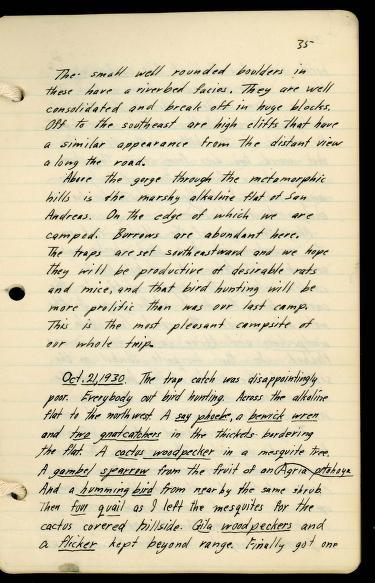 35
The small well rounded boulders in
these have a riverbed facies. They are well
consolidated and break off in huge blocks.
Off to the southeast are high cliffs that have
a similar appearance from the distant view
along the road.
Above the gorge through the metamorphic
hills is the marshy alkaline flat of San
Andreas. On the edge of which we are
camped. Burrows are abundant here.
The traps are set southeastward and we hope
they will be productive of desirable rats
and mice, and that bird hunting will be
more prolific than was our last camp.
This is the most pleasant campsite of
our whole trip.
Oct. 21, 1930. The trap catch was disappointingly
poor. Everybody out bird hunting. Across the alkaline
flat to the northwest. A say phoebe, a bewick wren
and two gnatcatchers in the thickets bordering
the flat. A cactus woodpecker in a mesquite tree.
A gambel sparrow from the fruit of an Agria pitahaya
And a humming bird from near by the same shrub.
Then four quail as I left the mesquites for the
cactus covered hillside. Gila woodpeckers and
a flicker kept beyond range. Finally got one